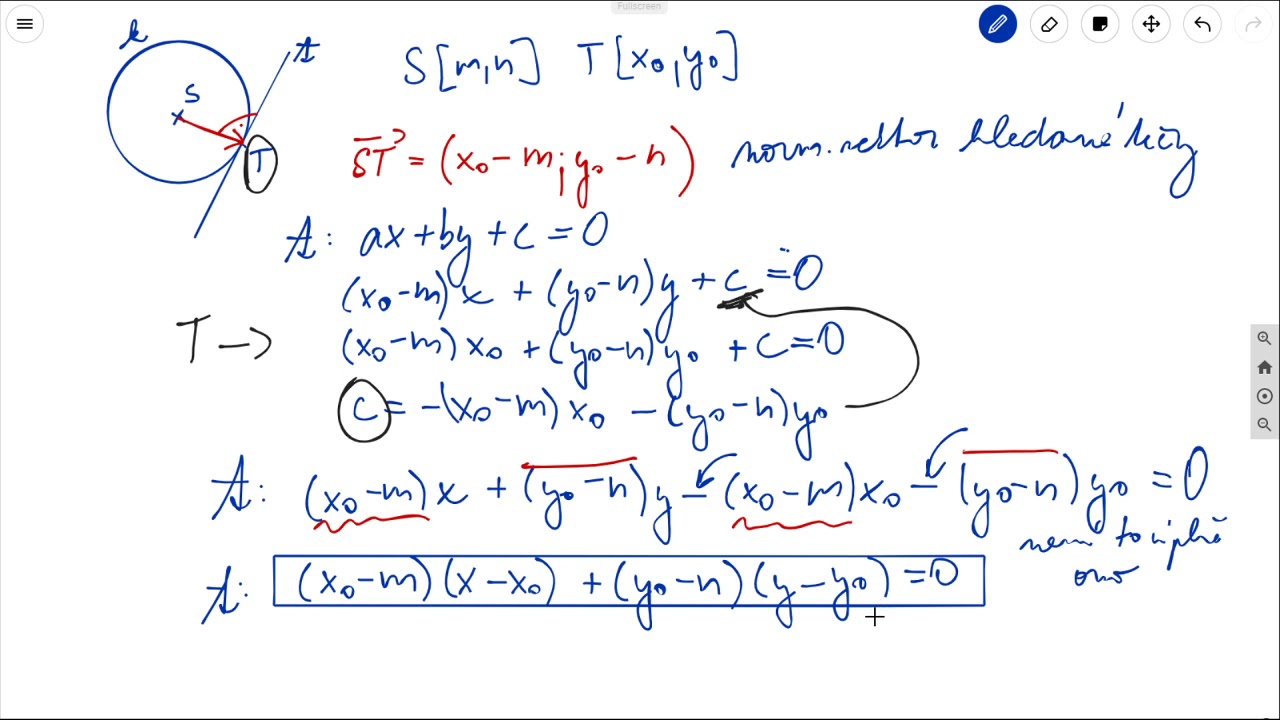 Fullscreen
k
t
S
T
S[m,n] T[x₀,y₀]
ST = (x₀-m; y₀-n) norm. vektor hledané
t: ax+by+c=0
(x₀-m)x + (y₀-n)y + c = 0
T → (x₀-m)x₀ + (y₀-n)y₀ + c = 0
c = -(x₀-m)x₀ - (y₀-n)y₀
t: (x₀-m)x + (y₀-n)y - (x₀-m)x₀ - (y₀-n)y₀ = 0
není to úplně
ono
t: (x₀-m)(x-x₀) + (y₀-n)(y-y₀) = 0